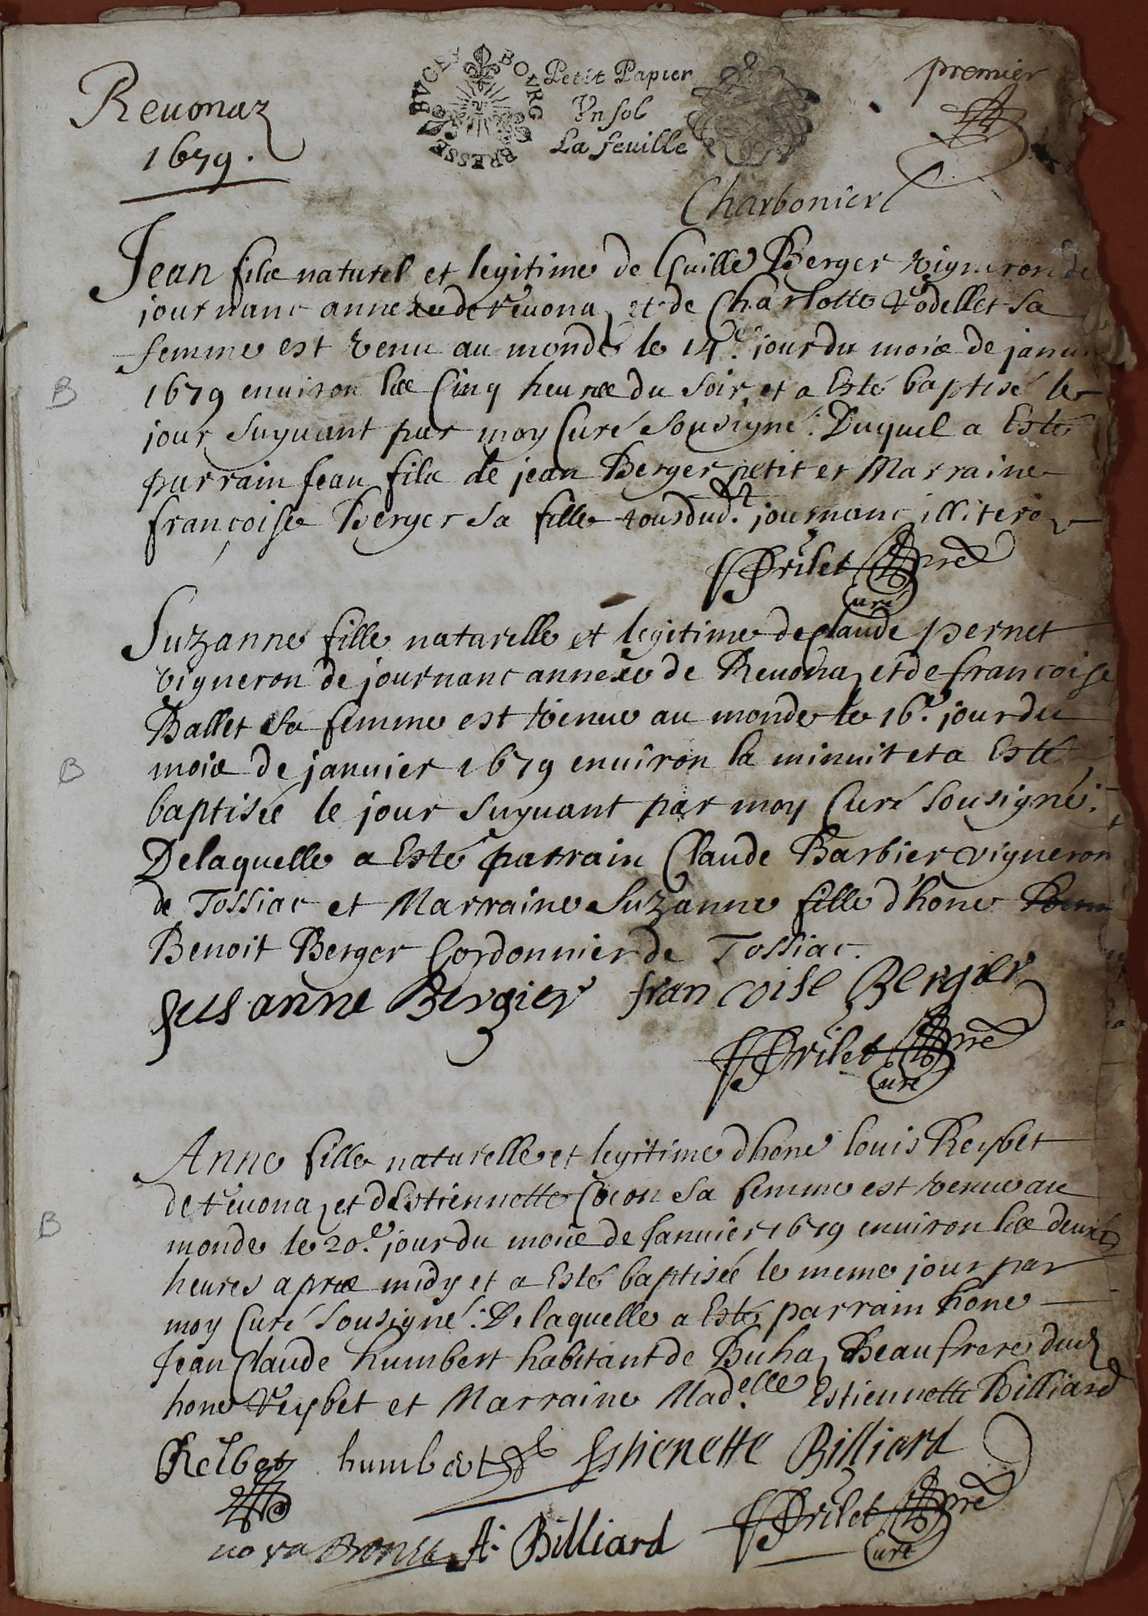 Reuonaz
1679.
BRESSE BVGEY BOVRG
Petit Papier
Vn sol
La feuille
premier
Charbonier
Jean filz naturel et legitime de Guille Berger vigneron de
journanc annexe de Reuonaz et de Charlotte Rodellet sa
femme est venu au monde le 14e. jour du mois de januier
1679 enuiron les Cinq heures du soir, et a Esté baptisé le
jour suyuant par moy Curé sousigné: Duquel a Esté
parrain Jean filz de jean Berger petit et Marraine
françoise Berger sa fille tous dudt. journanc illiteréz
Prilet pre
Curé
Suzanne fille naturelle et legitime de Claude pernet
vigneron de journanc annexe de Reuonaz et de françoise
Ballet sa femme est venue au monde le 16e. jour du
mois de januier 1679 enuiron la minuit et a Esté
baptisée le jour suyuant par moy Curé sousigné:
De laquelle a Esté parrain Claude Barbier vigneron
de Tossiac et Marraine Suzanne fille d'hone
Benoit Berger Cordonnier de Tossiac.
susanne Bergier françoise Bergier
Prilet pre
Curé
Anne fille naturelle et legitime dhone louis Reybet
de reuonaz et dEstiennette Cocon sa femme est venue au
monde le 20e. jour du mois de Januier 1679 enuiron les deux
heures apres midy et a Esté baptisée le meme jour par
moy Curé sousigné: De laquelle a Esté parrain hone
Jean Claude humbert habitant de Buhaz Beaufrere dud
hone Reybet et Marraine Madelle. Estiennette Billiard
Reibet humbert Estienette Billiard
A. Billiard
Prilet pre
Curé
B
B
B